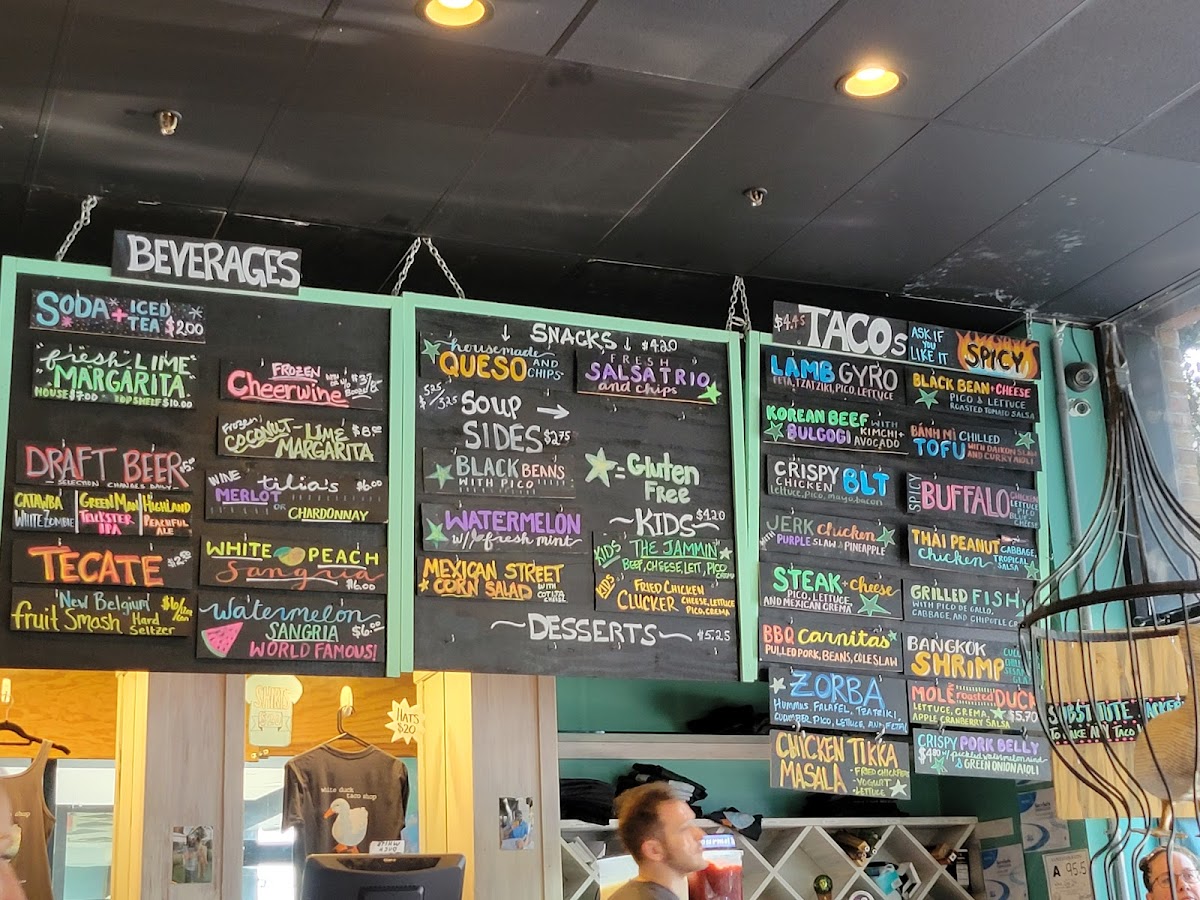 BEVERAGES
SODA + ICED TEA $2.00
"fresh" LIME
MARGARITA
HOUSE $7.00 TOP SHELF $10.00
DRAFT BEER
SELECTION CHANGES DAILY
CATAWBA
WHITE ZOMBIE
GREEN MAN
TRICKSTER
IPA
HIGHLAND
PEACEFUL
ALE
TECATE
'New Belgium'
fruit Smash Hard
Seltzer
FROZEN
Cheerwine
Frozen
COCONUT-LIME
MARGARITA
WINE tilia's $6.00
MERLOT OR CHARDONNAY
WHITE PEACH
Sangria
$6.00
Watermelon
SANGRIA $6.00
WORLD FAMOUS!
↓ SNACKS ↓ $4.20
housemade
QUESO AND
CHIPS
FRESH
SALSA TRIO
and chips
SOUP →
SIDES $2.75
BLACK BEANS
WITH PICO
WATERMELON
w/ fresh mint
MEXICAN STREET
CORN SALAD WITH
COTIJA
CHEESE
= Gluten
Free
~KIDS~ $4.20
KIDS THE JAMMIN'
BEEF, CHEESE, LETT, PICO
CREMA
KIDS FRIED CHICKEN
CLUCKER CHEESE, LETTUCE
PICO, CREMA
~DESSERTS~ $5.25
$4.45 TACOs
ASK IF
YOU
LIKE IT
SPICY
LAMB GYRO
FETA, TZATZIKI, PICO, LETTUCE
KOREAN BEEF WITH
BULGOGI KIMCHI +
AVOCADO
CRISPY
CHICKEN BLT
lettuce, pico, mayo, bacon
JERK chicken
WITH PURPLE SLAW & PINEAPPLE
STEAK + cheese
PICO, LETTUCE
AND MEXICAN CREMA
BBQ CARNITAS
PULLED PORK, BEANS, COLE SLAW
ZORBA
HUMMUS, FALAFEL, TZATZIKI,
CUCUMBER PICO, LETTUCE, AND FETA
CHICKEN TIKKA
MASALA - FRIED CHICKEN
- YOGURT
- LETTUCE
BLACK BEAN + CHEESE
PICO & LETTUCE
ROASTED TOMATO SALSA
BÁNH MÌ CHILLED
TOFU WITH DAIKON SLAW
AND CURRY AIOLI
SPICY BUFFALO CHICKEN
LETTUCE
PICO
BLUE
CHEESE
THAI PEANUT CABBAGE,
chicken TROPICAL
SALSA
GRILLED FISH
WITH PICO DE GALLO,
CABBAGE, AND CHIPOTLE
BANGKOK
SHRIMP
MOLÉ roasted DUCK
LETTUCE, CREMA
APPLE CRANBERRY SALSA $5.70
CRISPY PORK BELLY
w/ pickled watermelon rind
& GREEN ONION AIOLI
SUBSTITUTE
TO MAKE ANY TACO
HATS
$20
white duck
taco shop
A 95.5